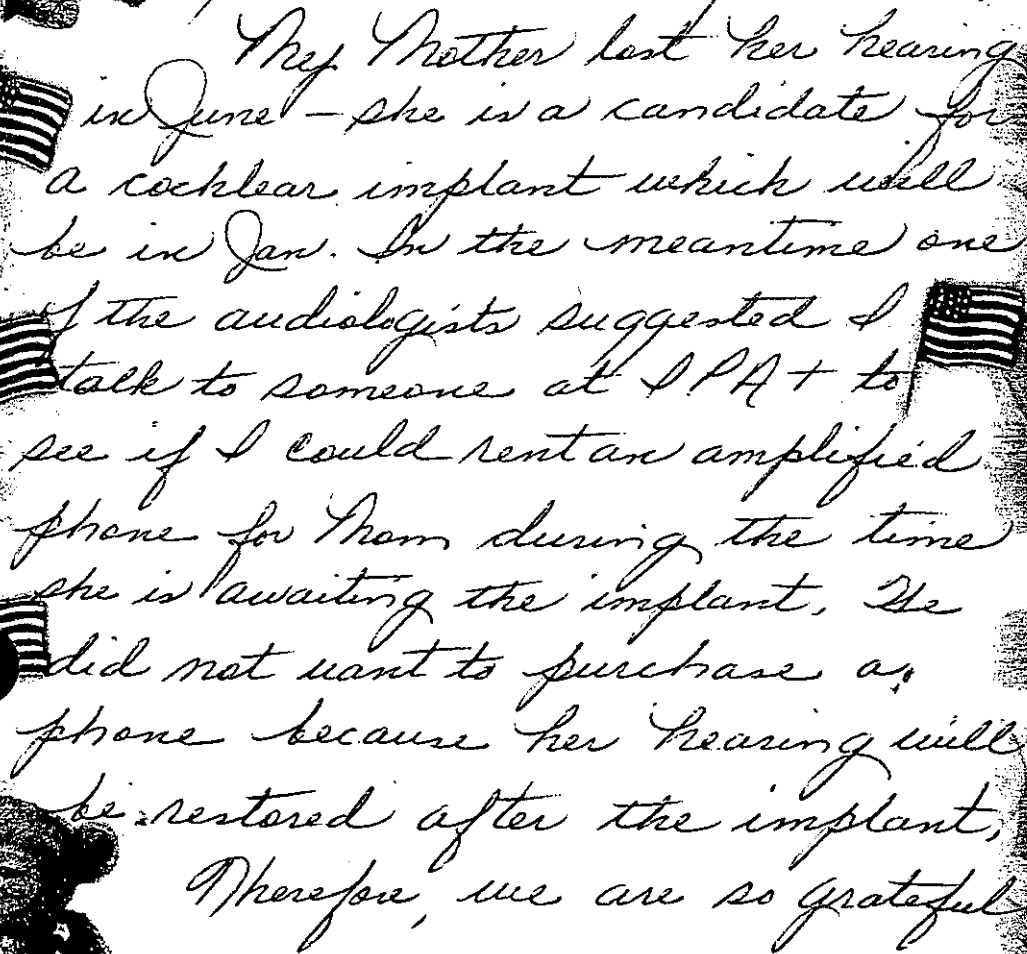 My Mother lost her hearing
in June - she is a candidate for
a cochlear implant which will
be in Jan. In the meantime one
of the audiologists suggested I
talk to someone at IPAT to
see if I could rent an amplified
phone for Mom during the time
she is awaiting the implant. We
did not want to purchase a
phone because her hearing will
be restored after the implant.
Therefore, we are so grateful